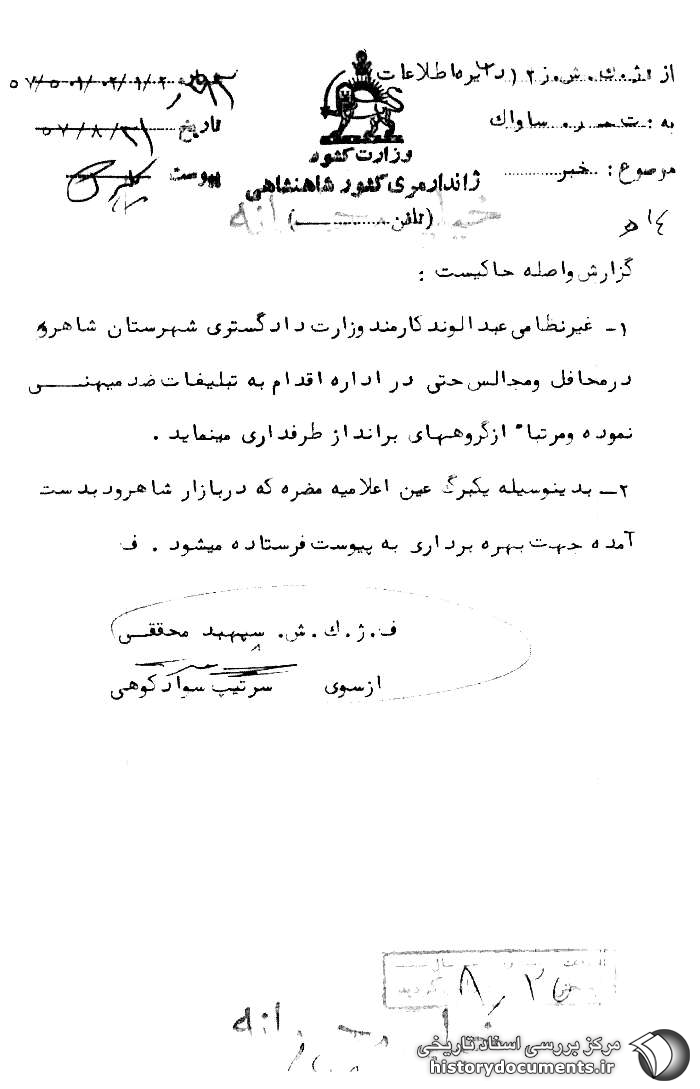 از : ژ . ك . ش . ر ۲ ( دایره اطلاعات
به : ساواك
موضوع : خبر
تاریخ ۵۷/۸/۲۱
پیوست
وزارت کشور
ژاندارمری کشور شاهنشاهی
(تلفن)
خیلی محرمانه
گزارش واصله حاکیست :
۱- غیرنظامی عبدالوند کارمند وزارت دادگستری شهرستان شاهرود
درمحافل ومجالس حتی در اداره اقدام به تبلیغات ضد میهنی
نموده ومرتبا" ازگروههای برانداز طرفداری مینماید .
۲- بدینوسیله یکبرگ عین اعلامیه مضره که دربازار شاهرود بدست
آمده جهت بهره برداری به پیوست فرستاده میشود . ف
ف . ژ . ك . ش . سپهبد محققی
ازسوی سرتیپ سوادکوهی
خیلی محرمانه
مرکز بررسی اسناد تاریخی
historydocuments.ir